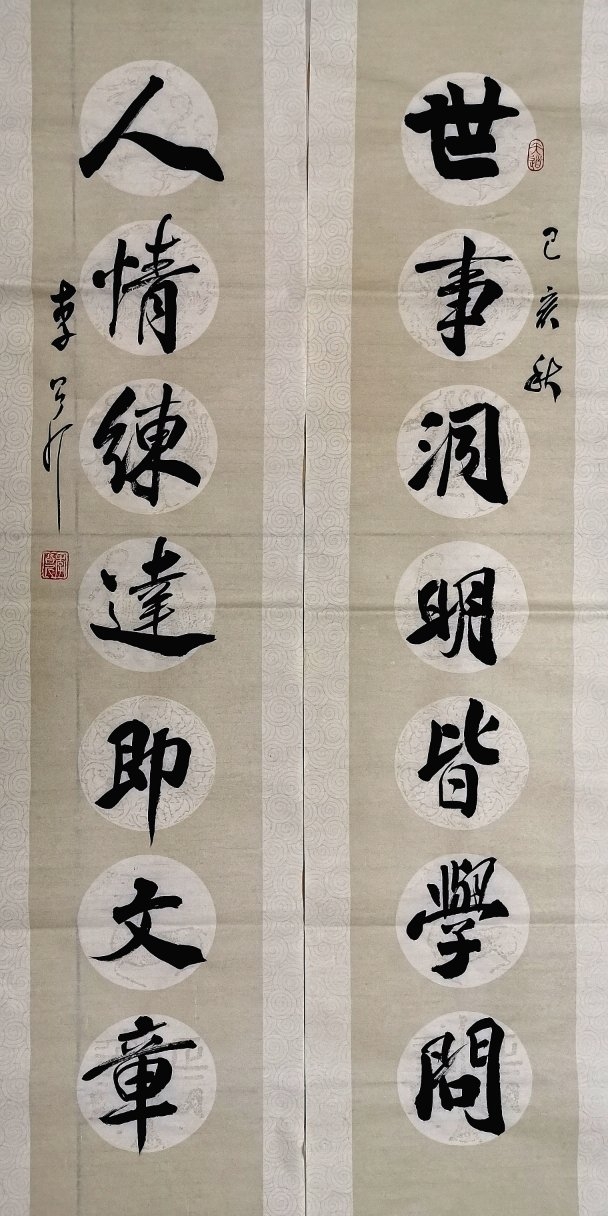 己亥秋
世事洞明皆學問
人情練達即文章